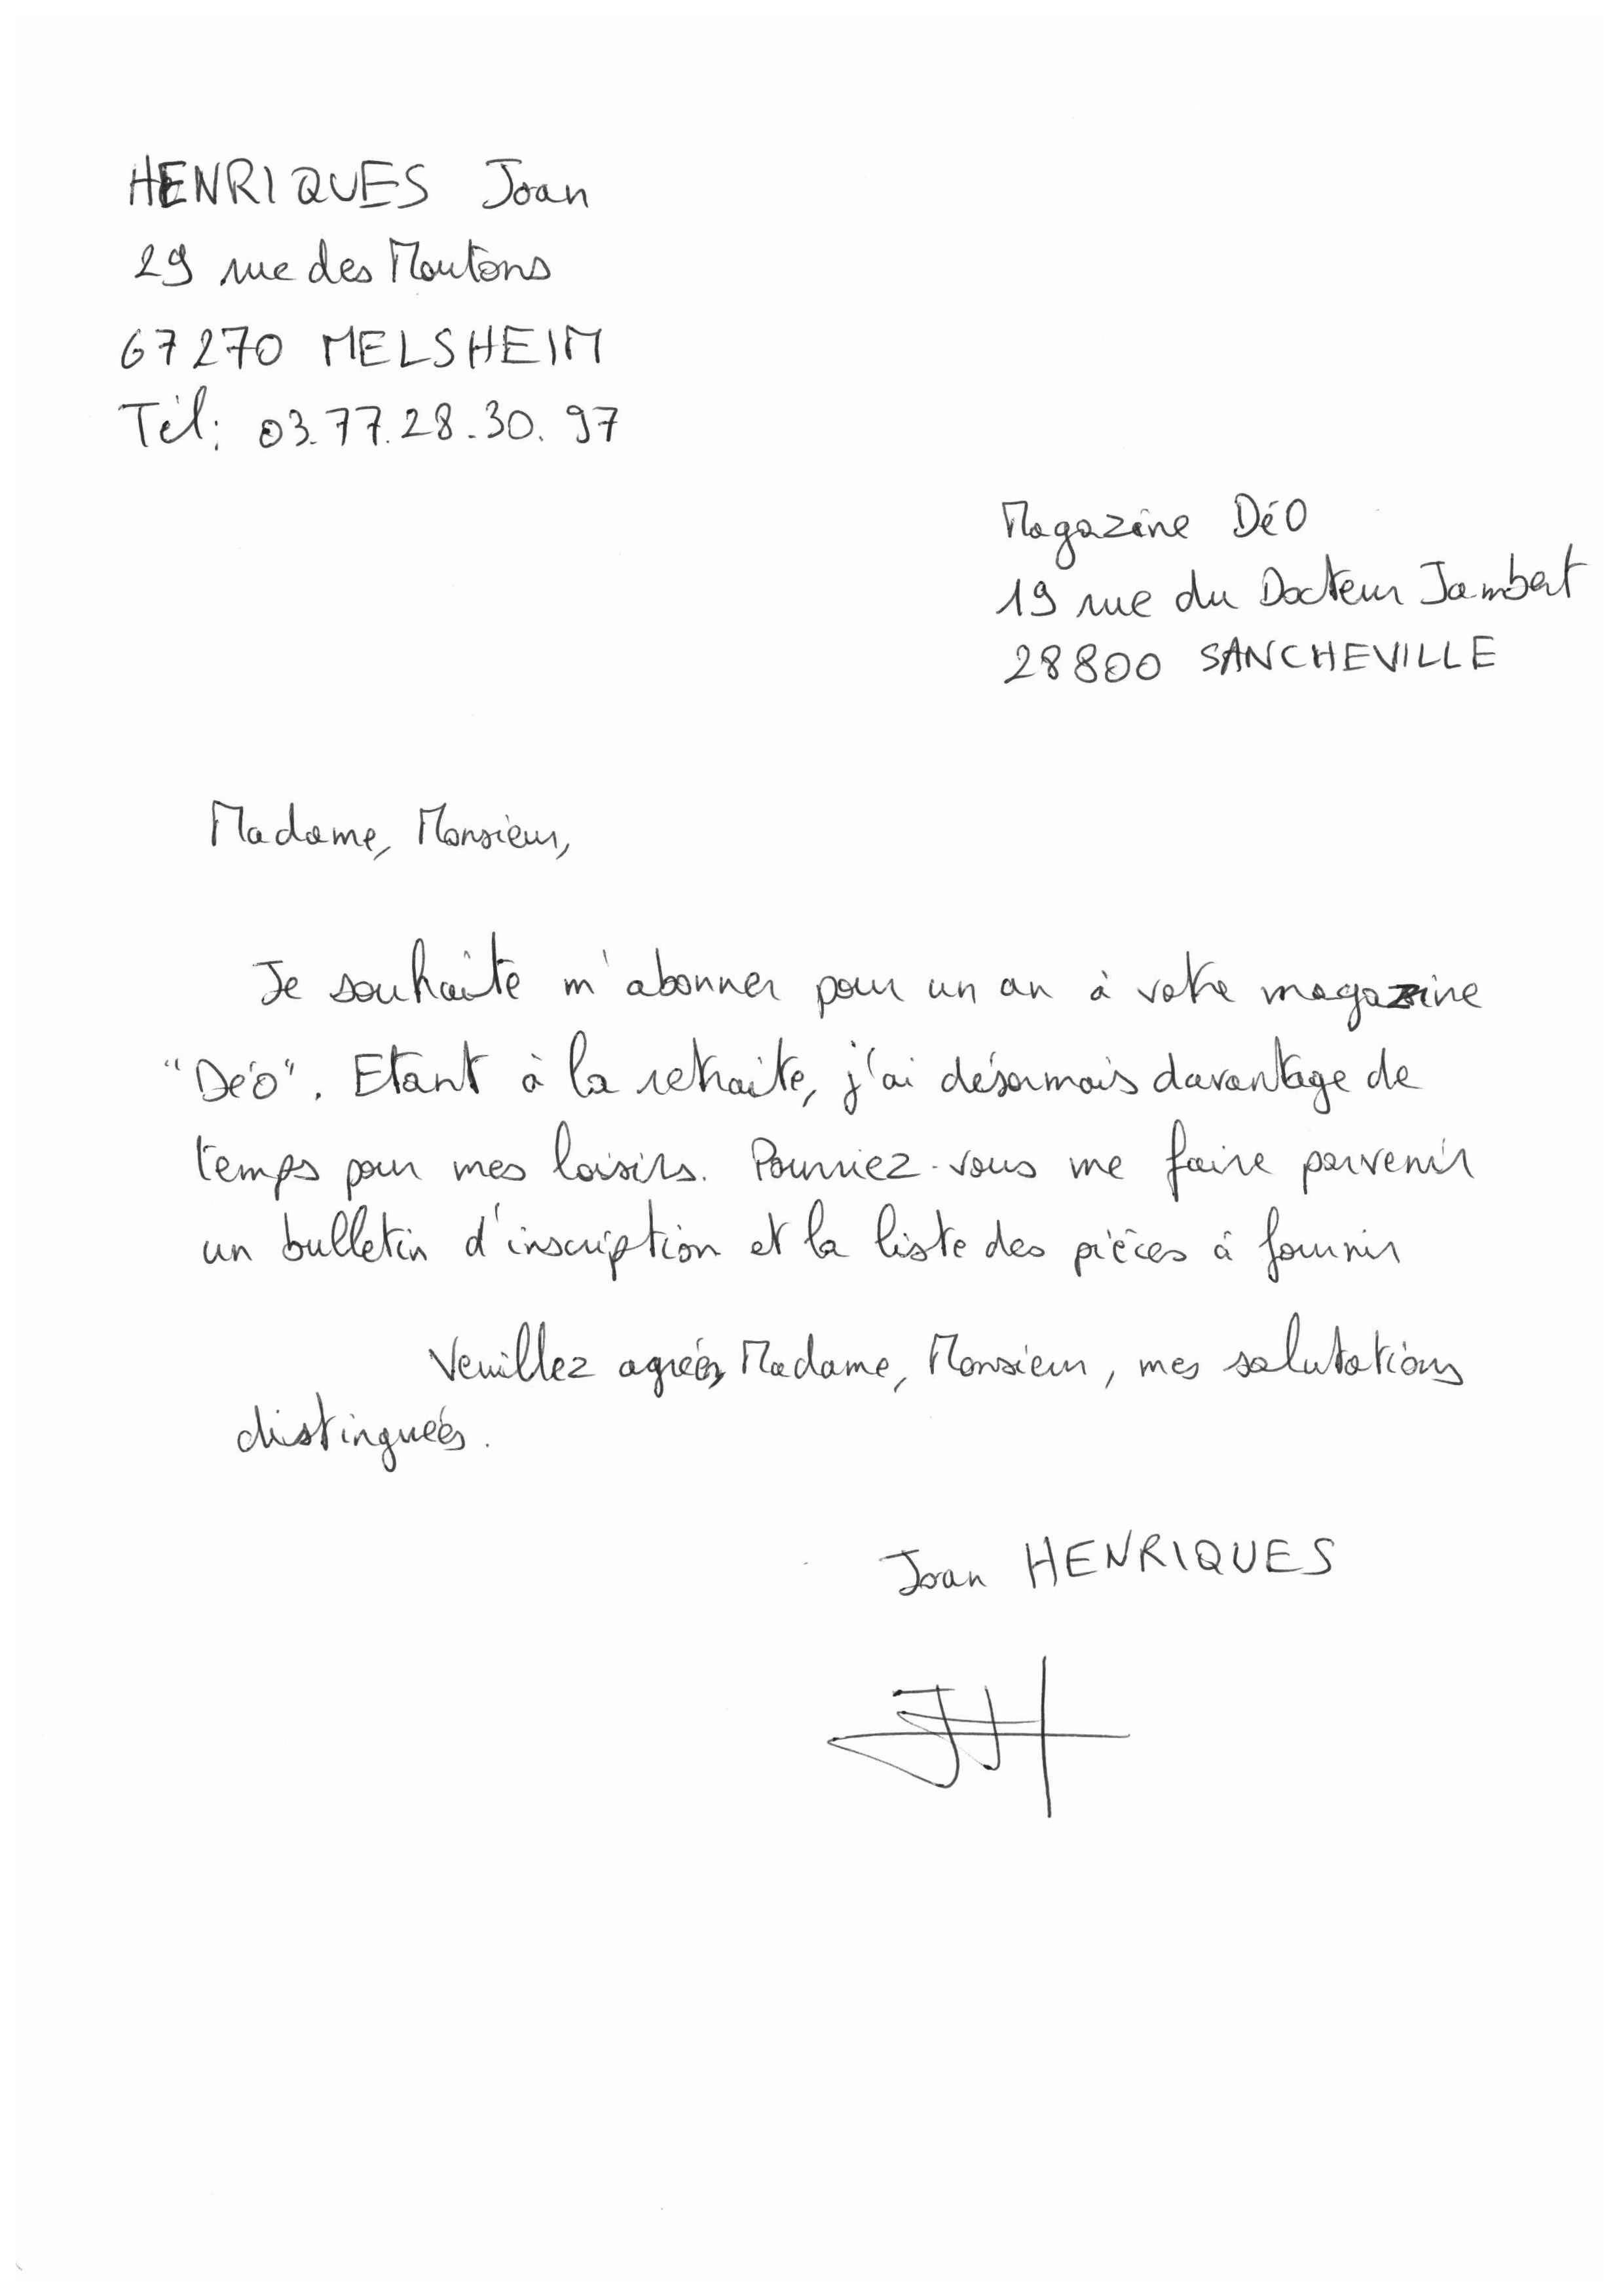 HENRIQUES Joan
29 rue des Moutons
67270 MELSHEIM
Tél: 03.77.28.30.97
Magazine DéO
19 rue du Docteur Jambert
28800 SANCHEVILLE
Madame, Monsieur,
Je souhaite m'abonner pour un an à votre magazine
"Déo". Etant à la retraite, j'ai désormais davantage de
temps pour mes loisirs. Pourriez-vous me faire parvenir
un bulletin d'inscription et la liste des pièces à fournir
Veuillez agréer, Madame, Monsieur, mes salutations
distinguées.
Joan HENRIQUES
JH